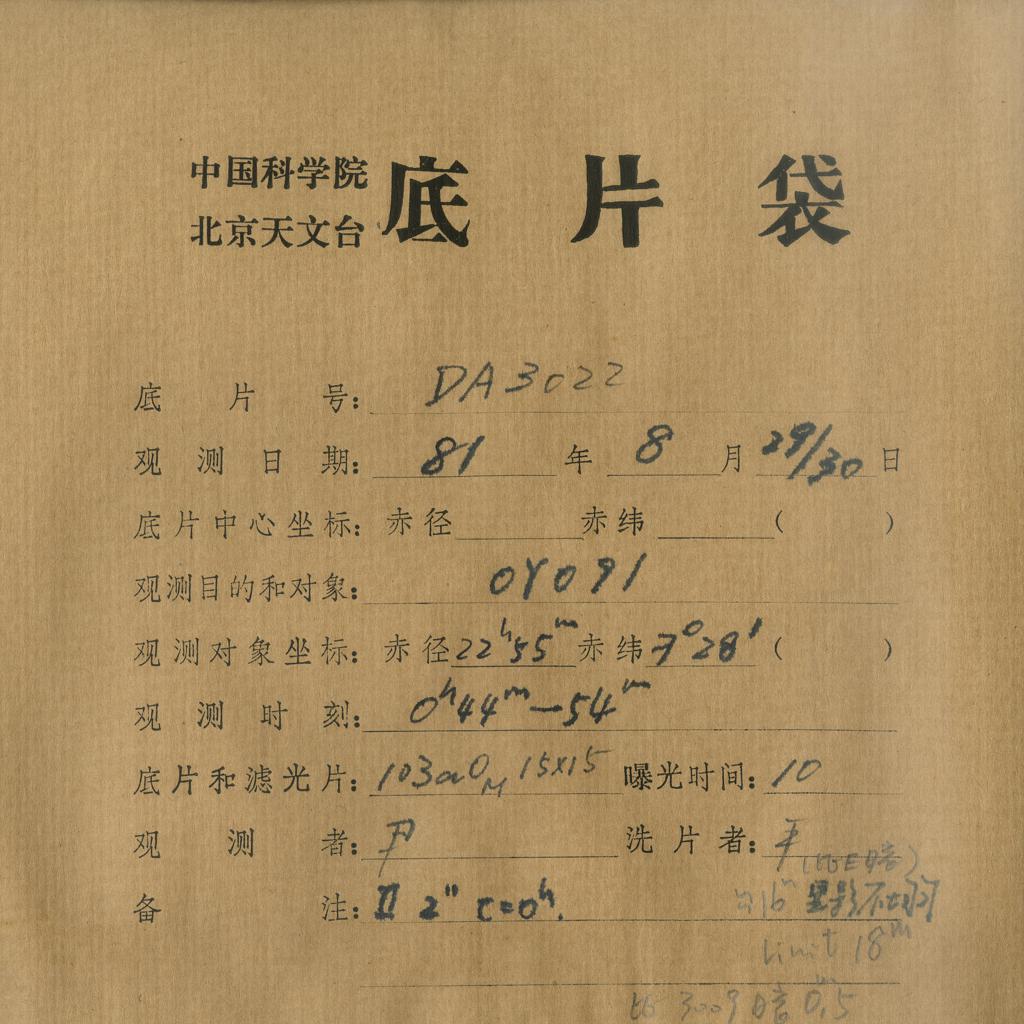 中国科学院
北京天文台
底片袋
底片号: DA3022
观测日期: 81年8月29/30日
底片中心坐标: 赤径 赤纬 ( )
观测目的和对象: OY091
观测对象坐标: 赤径22ʰ55ᵐ赤纬7°28′( )
观测时刻: 0ʰ44ᵐ—54ᵐ
底片和滤光片: 103aO 15x15 曝光时间: 10
观测者: 尹 洗片者:
备注: II 2" τ=0ʰ.
limit 18ᵐ
比3009暗0.5